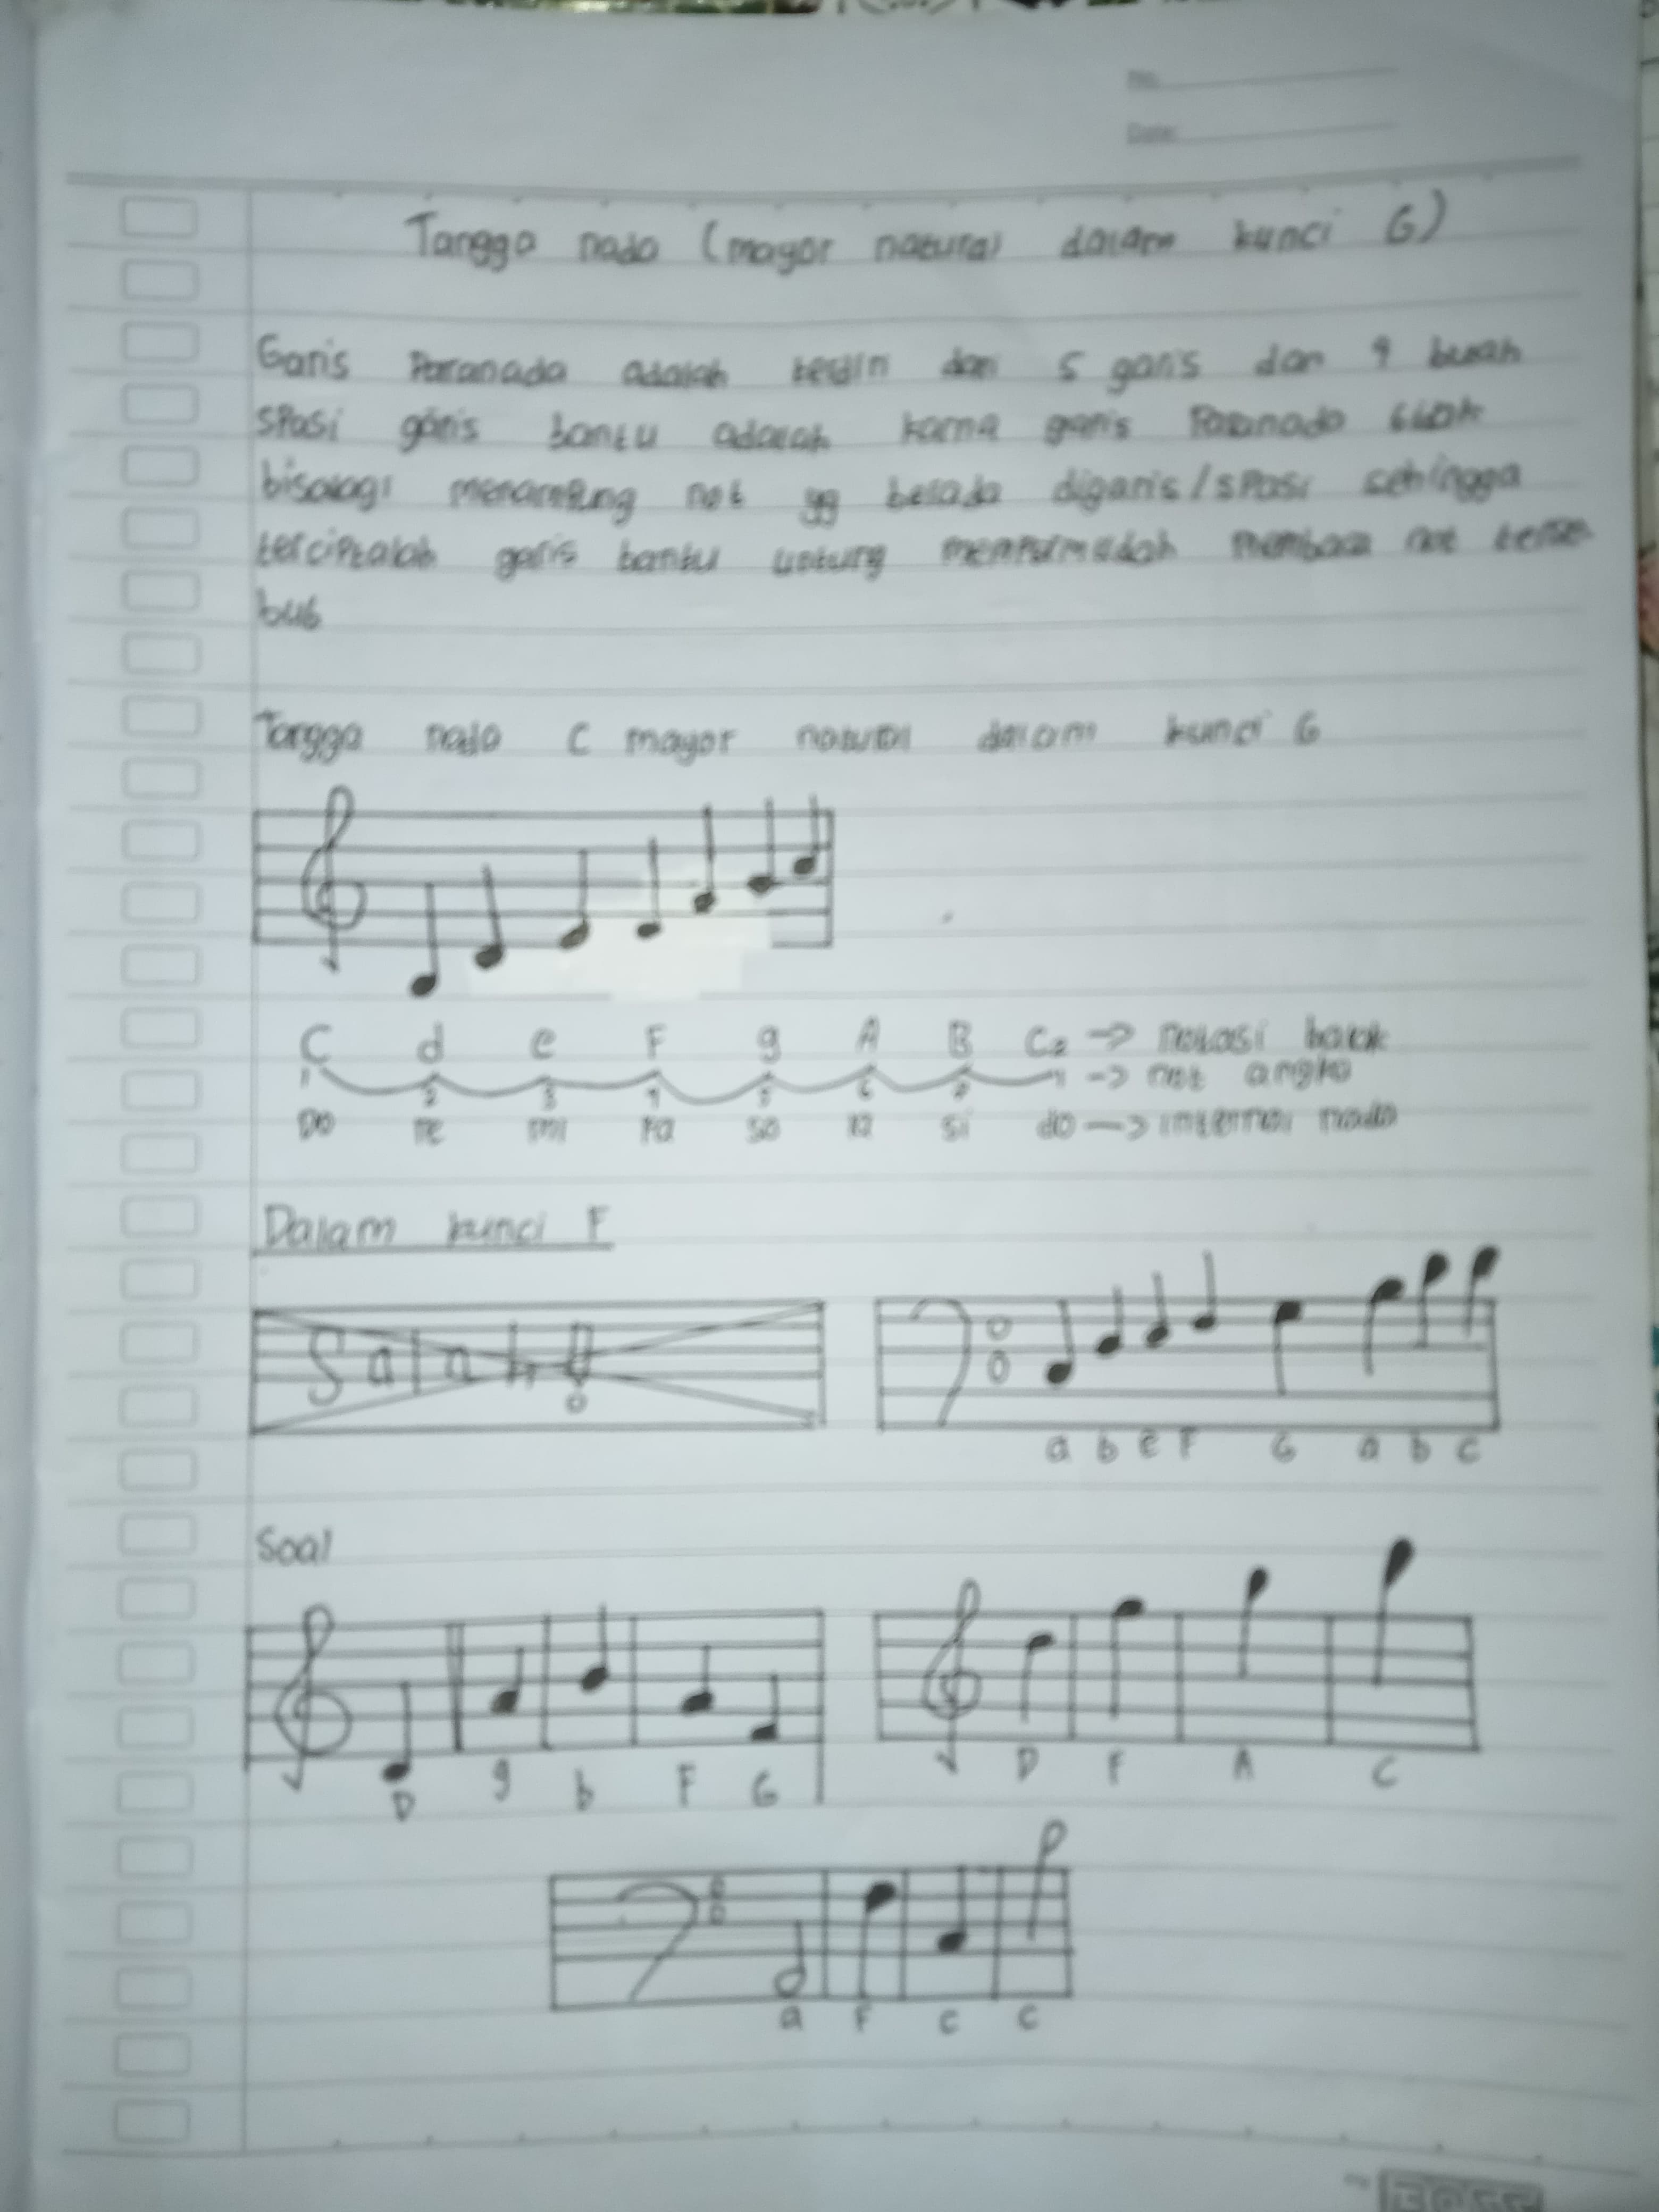 No.
Date:
Tangga nada (mayor natural dalam kunci G)
Garis Paranada adalah terdiri dari 5 garis dan 4 buah
spasi garis bantu adalah karna garis Paranada tidak
bisalagi menampung not yg berada digaris/spasi sehingga
terciptalah garis bantu untung mempermudah membaca not terse
but
Tangga nada C mayor natural dalam kunci G
C d e F g A B C2 -> notasi balok
1 2 3 4 5 6 7 1 -> not angka
Do re mi fa so la si do -> interval nada
Dalam kunci F
Salah!!
a b e F G a b c
Soal
D g b F G
D F A C
a F c c